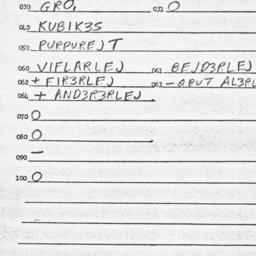 030 GRO, 031 O
040 KUBIK3S
050 PURPUREJT
060 VIFLARLEJ 061 BEJD3RLEJ
062 + FIR3RLEJ 063 - GRUT AL3RL
064 + AND3R3RLEJ
070 O
080 O
090 —
100 O